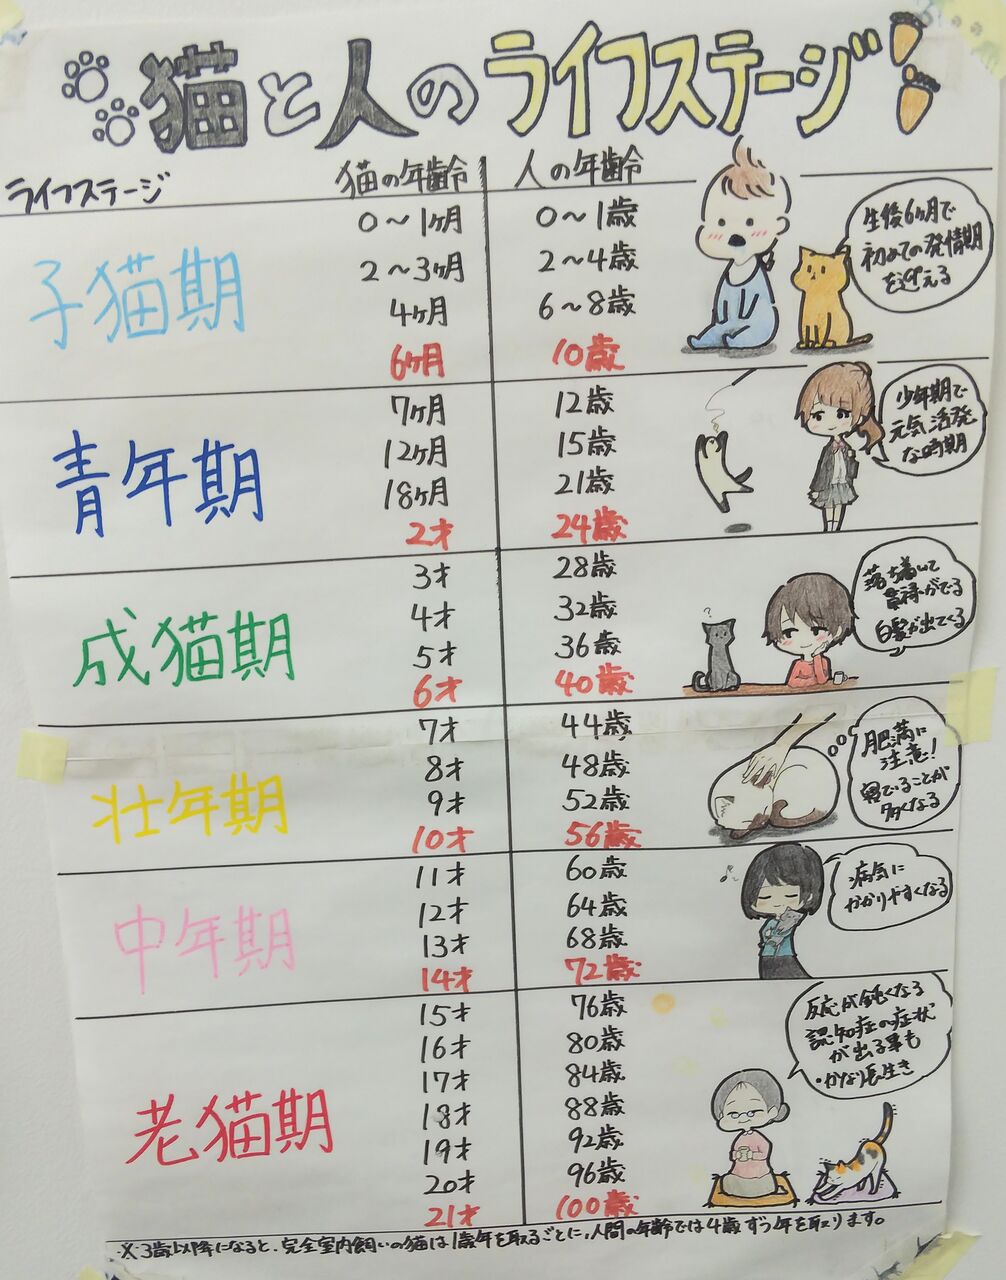 猫と人のライフステージ!
ライフステージ 猫の年齢 人の年齢
子猫期
0～1ヶ月 0～1歳
2～3ヶ月 2～4歳
4ヶ月 6～8歳
6ヶ月 10歳
生後6ヶ月で
初めての発情期
を迎える
青年期
7ヶ月 12歳
12ヶ月 15歳
18ヶ月 21歳
2才 24歳
少年期で
元気活発
な時期
成猫期
3才 28歳
4才 32歳
5才 36歳
6才 40歳
?
落ち着いて
貫禄がでる
白髪が出てくる
壮年期
7才 44歳
8才 48歳
9才 52歳
10才 56歳
肥満に
注意!
寝ていることが
多くなる
中年期
11才 60歳
12才 64歳
13才 68歳
14才 72歳
病気に
かかりやすくなる
老猫期
15才 76歳
16才 80歳
17才 84歳
18才 88歳
19才 92歳
20才 96歳
21才 100歳
反応が鈍くなる
認知症の症状
が出る事も
・かなり長生き
※3歳以降になると、完全室内飼いの猫は1歳年を取るごとに、人間の年齢では4歳ずつ年を取ります。